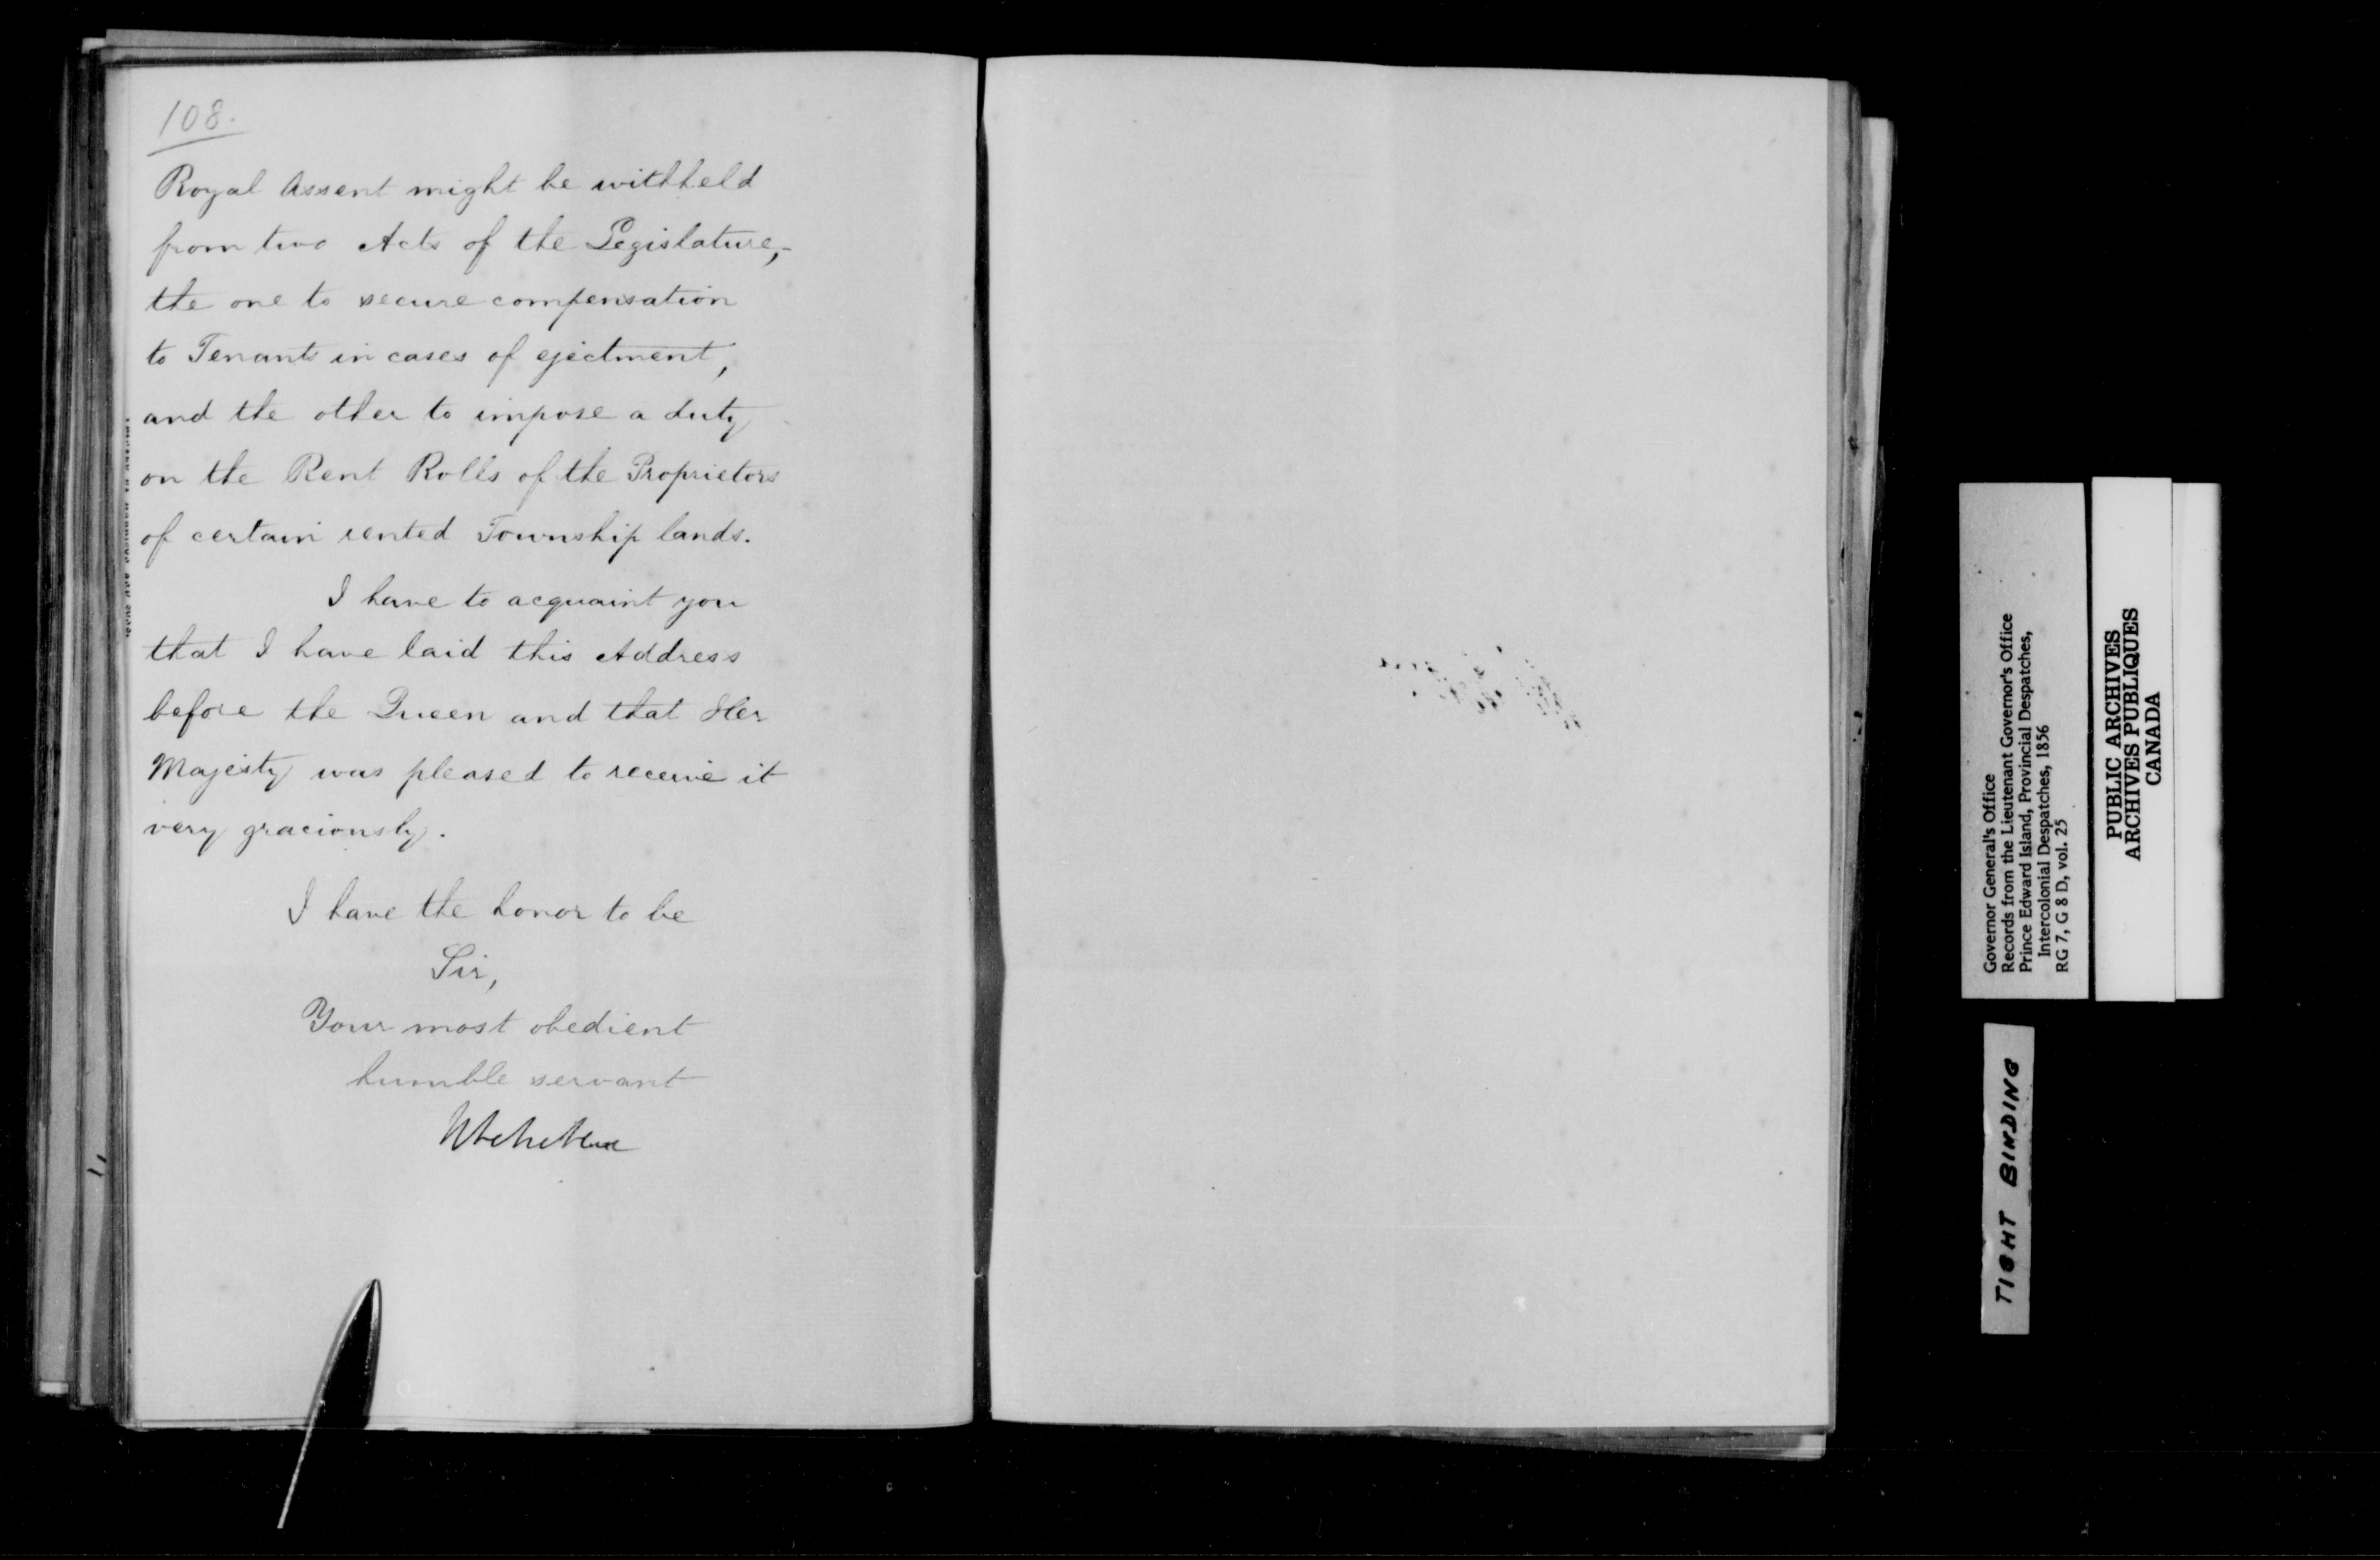 108.
Royal Assent might be withheld
from two Acts of the Legislature,-
the one to secure compensation
to Tenants in cases of ejectment,
and the other to impose a duty
on the Rent Rolls of the Proprietors
of certain rented Township lands.
I have to acquaint you
that I have laid this Address
before the Queen and that Her
Majesty was pleased to receive it
very graciously.
I have the honor to be
Sir,
Your most obedient
humble servant
Governor General's Office
Records from the Lieutenant Governor's Office
Prince Edward Island, Provincial Despatches,
Intercolonial Despatches, 1856
RG 7, G 8 D, vol. 25
PUBLIC ARCHIVES
ARCHIVES PUBLIQUES
CANADA
TIGHT BINDING